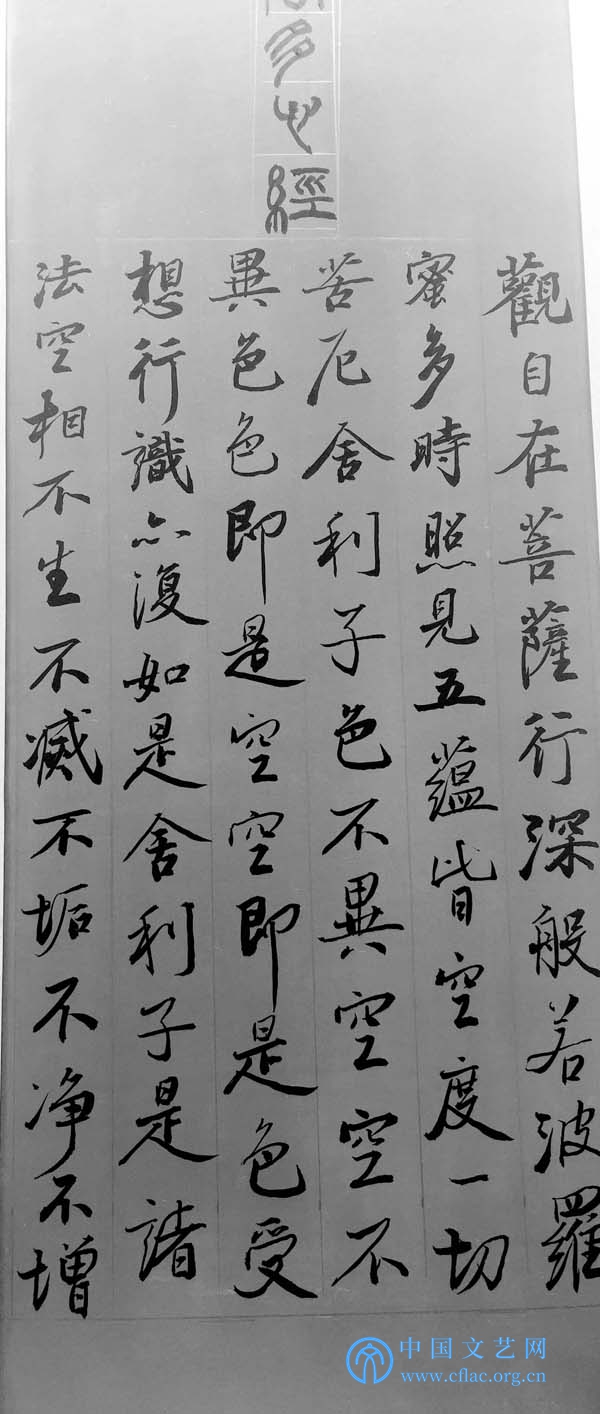 多心經
觀自在菩薩行深般若波羅
蜜多時照見五蘊皆空度一切
苦厄舍利子色不異空空不
異色色即是空空即是色受
想行識亦復如是舍利子是諸
法空相不生不滅不垢不净不增
中国文艺网
www.cflac.org.cn